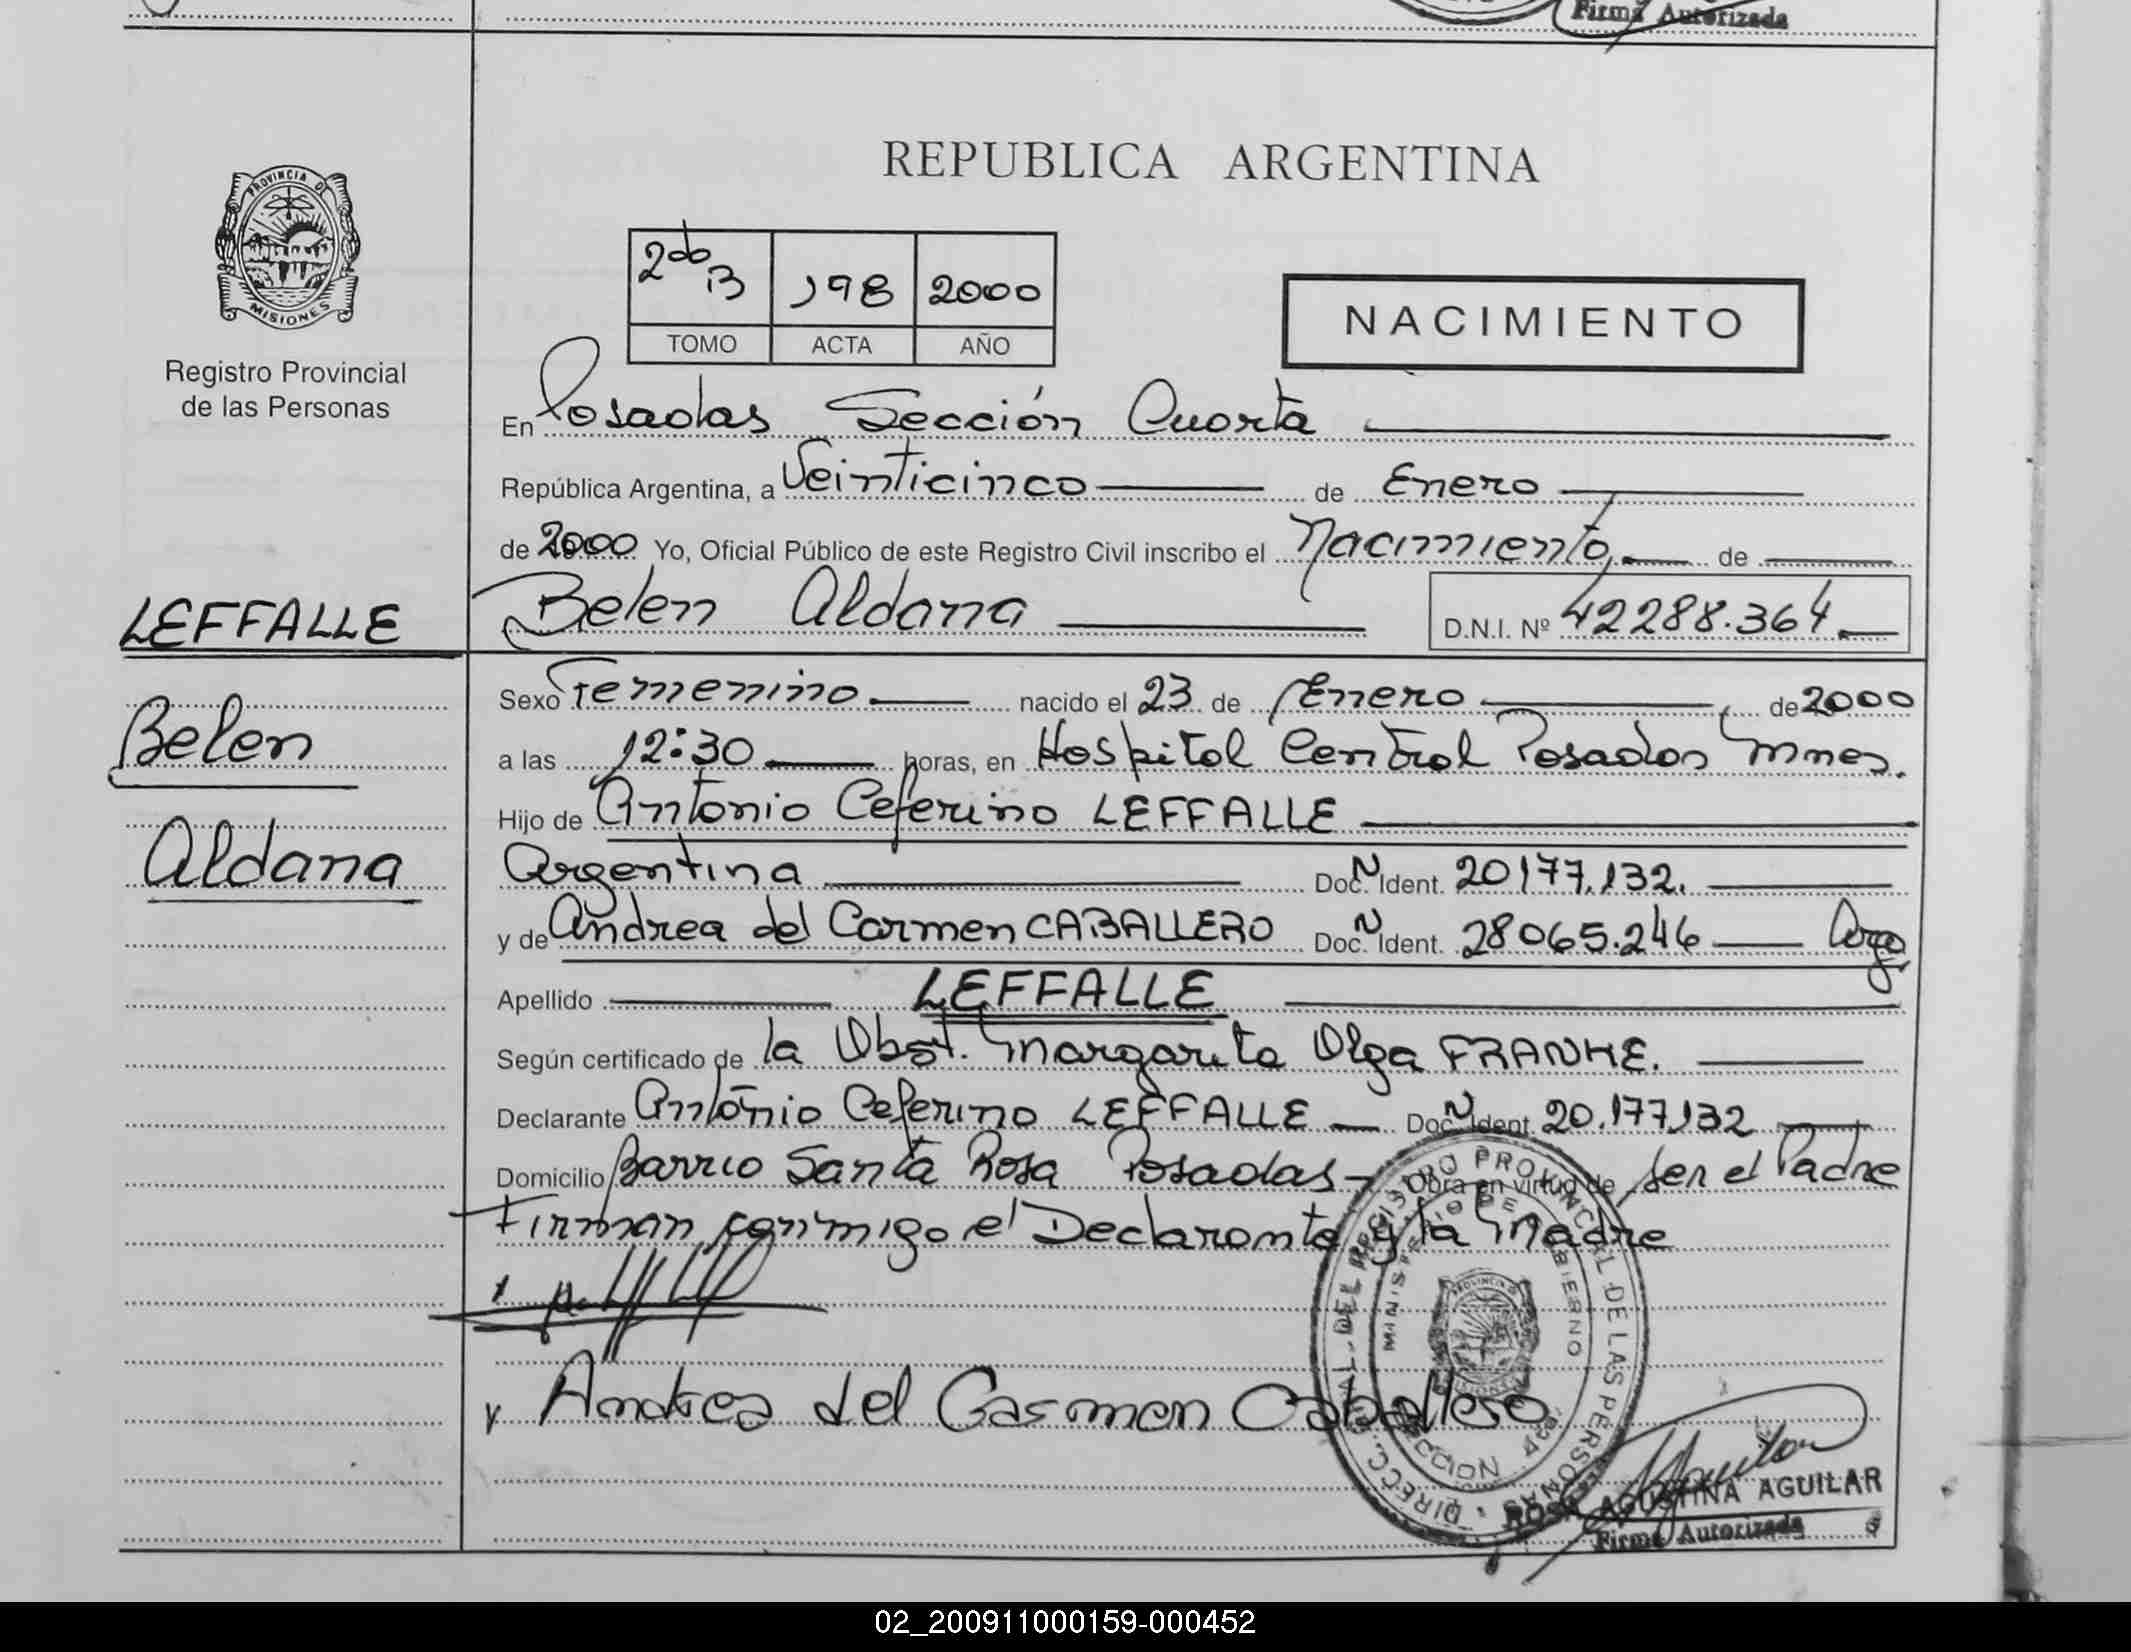 Firma Autorizada
PROVINCIA D
MISIONES
Registro Provincial
de las Personas
REPUBLICA ARGENTINA
2do B 198 2000
TOMO ACTA AÑO
NACIMIENTO
En Posadas Sección Cuarta
República Argentina, a Veinticinco de Enero
de 2000 Yo, Oficial Público de este Registro Civil inscribo el Nacimiento de
LEFFALLE
Belen Aldana
D.N.I. Nº 42288.364
Belen
Aldana
Sexo Femenino nacido el 23 de Enero de 2000
a las 12:30 horas, en Hospital Central Posadas Mnes.
Hijo de Antonio Ceferino LEFFALLE
Argentina Doc. N Ident. 20177.132.
y de Andrea del Carmen CABALLERO Doc. N Ident. 28065.246 Arg
Apellido LEFFALLE
Según certificado de la Obst. Margarita Olga FRANKE.
Declarante Antonio Ceferino LEFFALLE Doc. N Ident. 20.177.132
Domicilio Barrio Santa Rosa Posadas Obra en virtud de ser el Padre
Firman conmigo el Declarante y la Madre
y Andrea del Carmen Caballero
DIRECC. GRAL. DEL REGISTRO PROVINCIAL DE LAS PERSONAS
MINISTERIO DE GOBIERNO
SECCION 4ta.
ROSA AGUSTINA AGUILAR
Firma Autorizada
02_200911000159-000452